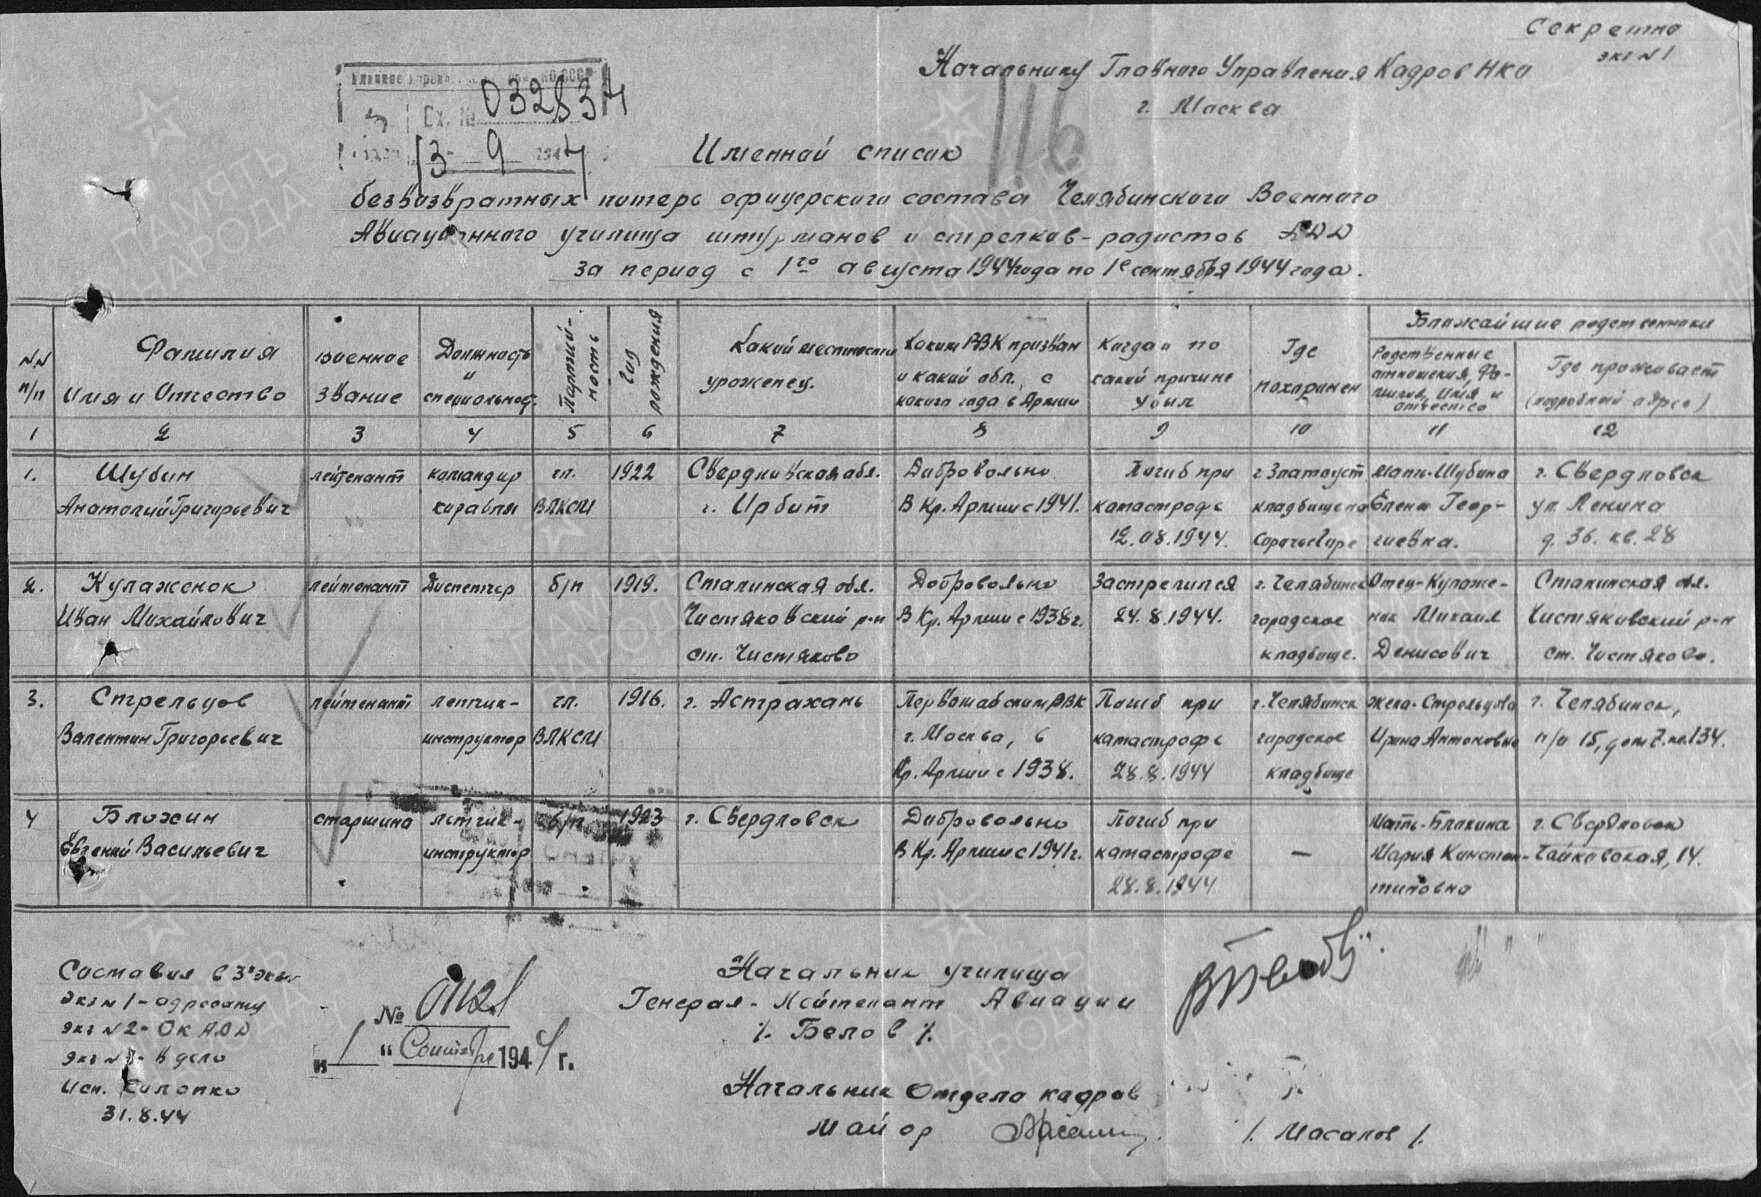 Секретно
экз №1
Начальнику Главного Управления Кадров НКО
г. Москва
116
Вх. № 03283
13 9 1944
Именной список
безвозвратных потерь офицерского состава Челябинского Военного
Авиационного училища штурманов и стрелков-радистов АДД
за период с 1го августа 1944 года по 1е сентября 1944 года.
№№ п/п
Фамилия Имя и Отчество
военное звание
Должность и специальност.
Партий-ность
Год рождения
Какой местности уроженец.
Каким РВК призван и какой обл., с какого года в Армии
Когда и по какой причине убыл
Где похоронен
Ближайшие родственники
Родственные отношения, Фа-милия, Имя и отчество
Где проживает (подробный адрес)
1 2 3 4 5 6 7 8 9 10 11 12
1. Шубин лейтенант командир чл. 1922 Свердловская обл. Добровольно Погиб при г. Златоуст мать-Шубина г. Свердловск
Анатолий Григорьевич корабля ВЛКСМ г. Ирбит В Кр. Армии с 1941. катастрофе кладбище на Елена Геор- ул. Ленина
12.08.1944. Сорочьей горе гиевна. д. 36. кв. 28
2. Кулаженок лейтенант Диспетчер б/п 1919. Сталинская обл. Добровольно Застрелился г. Челябинск Отец-Кулаже- Сталинская обл.
Иван Михайлович Чистяковский р-н В Кр. Армии с 1938г. 24.8.1944. городское нок Михаил Чистяковский р-н
ст. Чистяково кладбище. Денисович ст. Чистяково.
3. Стрельцов лейтенант летчик- чл. 1916. г. Астрахань Первомайским РВК Погиб при г. Челябинск жена-Стрельцова г. Челябинск,
Валентин Григорьевич инструктор ВЛКСМ г. Москва, в катастрофе городское Ирина Антоновна п/о 15, дом 7. кв. 134.
Кр. Армии с 1938. 28.8.1944 кладбище
4 Блохин старшина летчик- б/п 1923 г. Свердловск Добровольно Погиб при мать-Блохина г. Свердловск
Евгений Васильевич инструктор В Кр. Армии с 1941г. катастрофе — Мария Констан- Чайковская, 14.
28.8.1944 тиновна
Составил в 3х экз
экз №1-адресату
экз №2-ОК АДД
экз №3-в дело
Исп.
31.8.44
№
"1" Сентября 1944 г.
Начальник училища
Генерал-Лейтенант Авиации
/. Белов /.
Начальник Отдела кадров
Майор /. Масалов /.
ПАМЯТЬ НАРОДА